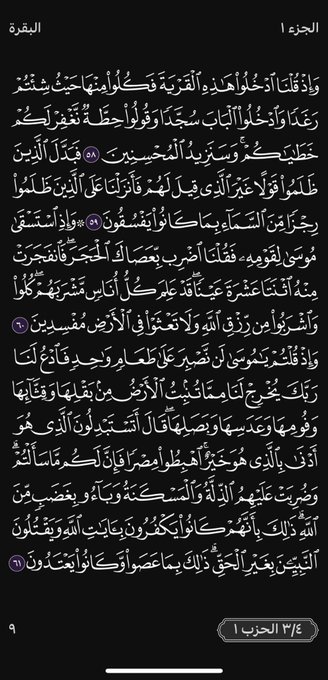 الجزء ١
البقرة
وَإِذْ قُلْنَا ٱدْخُلُوا۟ هَٰذِهِ ٱلْقَرْيَةَ فَكُلُوا۟ مِنْهَا حَيْثُ شِئْتُمْ
رَغَدًا وَٱدْخُلُوا۟ ٱلْبَابَ سُجَّدًا وَقُولُوا۟ حِطَّةٌ نَّغْفِرْ لَكُمْ
خَطَٰيَٰكُمْ ۚ وَسَنَزِيدُ ٱلْمُحْسِنِينَ ٥٨ فَبَدَّلَ ٱلَّذِينَ
ظَلَمُوا۟ قَوْلًا غَيْرَ ٱلَّذِى قِيلَ لَهُمْ فَأَنزَلْنَا عَلَى ٱلَّذِينَ ظَلَمُوا۟
رِجْزًا مِّنَ ٱلسَّمَآءِ بِمَا كَانُوا۟ يَفْسُقُونَ ٥٩ ۞ وَإِذِ ٱسْتَسْقَىٰ
مُوسَىٰ لِقَوْمِهِۦ فَقُلْنَا ٱضْرِب بِّعَصَاكَ ٱلْحَجَرَ ۖ فَٱنفَجَرَتْ
مِنْهُ ٱثْنَتَا عَشْرَةَ عَيْنًا ۖ قَدْ عَلِمَ كُلُّ أُنَاسٍ مَّشْرَبَهُمْ ۖ كُلُوا۟
وَٱشْرَبُوا۟ مِن رِّزْقِ ٱللَّهِ وَلَا تَعْثَوْا۟ فِى ٱلْأَرْضِ مُفْسِدِينَ ٦٠
وَإِذْ قُلْتُمْ يَٰمُوسَىٰ لَن نَّصْبِرَ عَلَىٰ طَعَامٍ وَٰحِدٍ فَٱدْعُ لَنَا
رَبَّكَ يُخْرِجْ لَنَا مِمَّا تُنۢبِتُ ٱلْأَرْضُ مِنۢ بَقْلِهَا وَقِثَّآئِهَا
وَفُومِهَا وَعَدَسِهَا وَبَصَلِهَا ۖ قَالَ أَتَسْتَبْدِلُونَ ٱلَّذِى هُوَ
أَدْنَىٰ بِٱلَّذِى هُوَ خَيْرٌ ۚ ٱهْبِطُوا۟ مِصْرًا فَإِنَّ لَكُم مَّا سَأَلْتُمْ ۗ
وَضُرِبَتْ عَلَيْهِمُ ٱلذِّلَّةُ وَٱلْمَسْكَنَةُ وَبَآءُو بِغَضَبٍ مِّنَ
ٱللَّهِ ۗ ذَٰلِكَ بِأَنَّهُمْ كَانُوا۟ يَكْفُرُونَ بِـَٔايَٰتِ ٱللَّهِ وَيَقْتُلُونَ
ٱلنَّبِيِّـۧنَ بِغَيْرِ ٱلْحَقِّ ۗ ذَٰلِكَ بِمَا عَصَوا۟ وَّكَانُوا۟ يَعْتَدُونَ ٦١
٣/٤ الحزب ١
٩